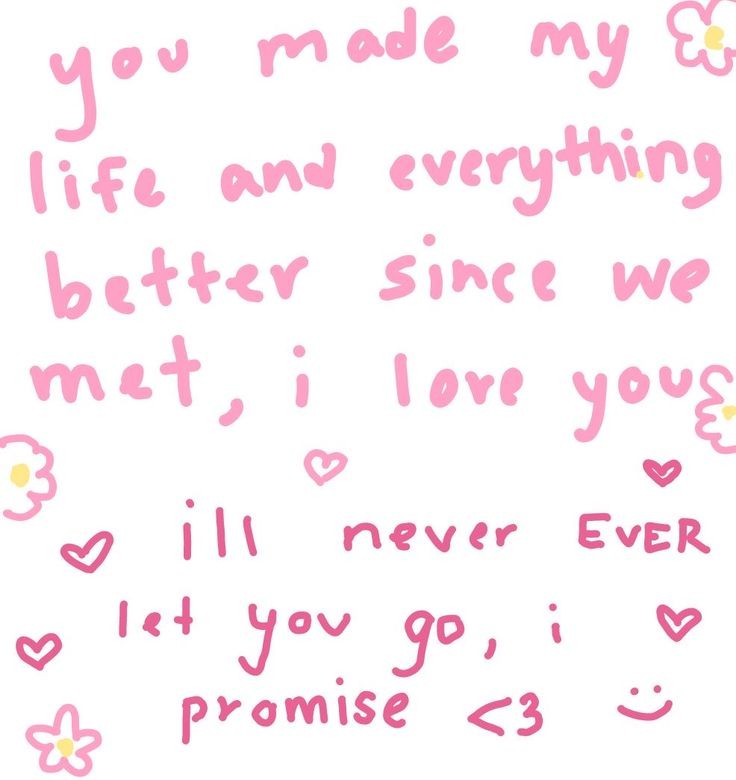 you made my
life and everything
better since we
met, i love you
ill never EVER
let you go, i
promise <3 :)